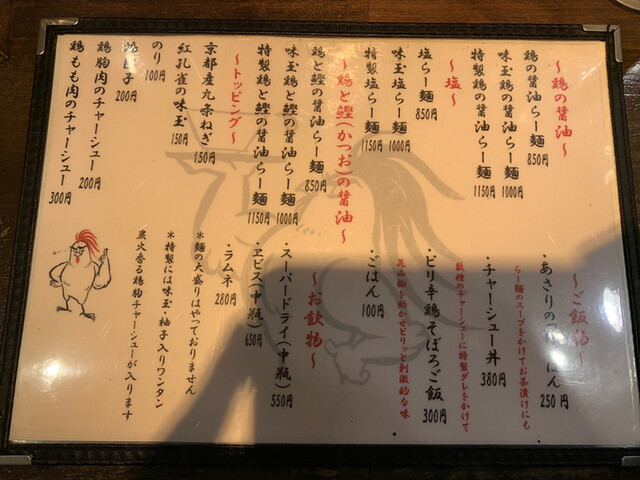 〜鶏の醤油〜
鶏の醤油らー麺 850円
味玉鶏の醤油らー麺 1000円
特製鶏の醤油らー麺 1150円
〜塩〜
塩らー麺 850円
味玉塩らー麺 1000円
特製塩らー麺 1150円
〜鶏と鰹(かつお)の醤油〜
鶏と鰹の醤油らー麺 850円
味玉鶏と鰹の醤油らー麺 1000円
特製鶏と鰹の醤油らー麺 1150円
〜トッピング〜
京都産九条ねぎ 150円
紅孔雀の味玉 150円
のり 100円
団子 200円
鶏胸肉のチャーシュー 200円
鶏もも肉のチャーシュー 300円
〜ご飯物〜
・あさりの はん 250円
らー麺のスープをかけてお茶漬けにも
・チャーシュー丼 380円
のチャーシューに特製ダレをかけて
・ピリ辛鶏そぼろご飯 300円
花山椒を効かせピリッと刺激的な味
・ごはん 100円
〜お飲物〜
・スーパードライ(中瓶) 550円
・ヱビス(中瓶) 650円
・ラムネ 280円
*麺の大盛りはやっておりません
*特製には味玉・柚子入りワンタン
炭火香る鶏胸チャーシューが入ります